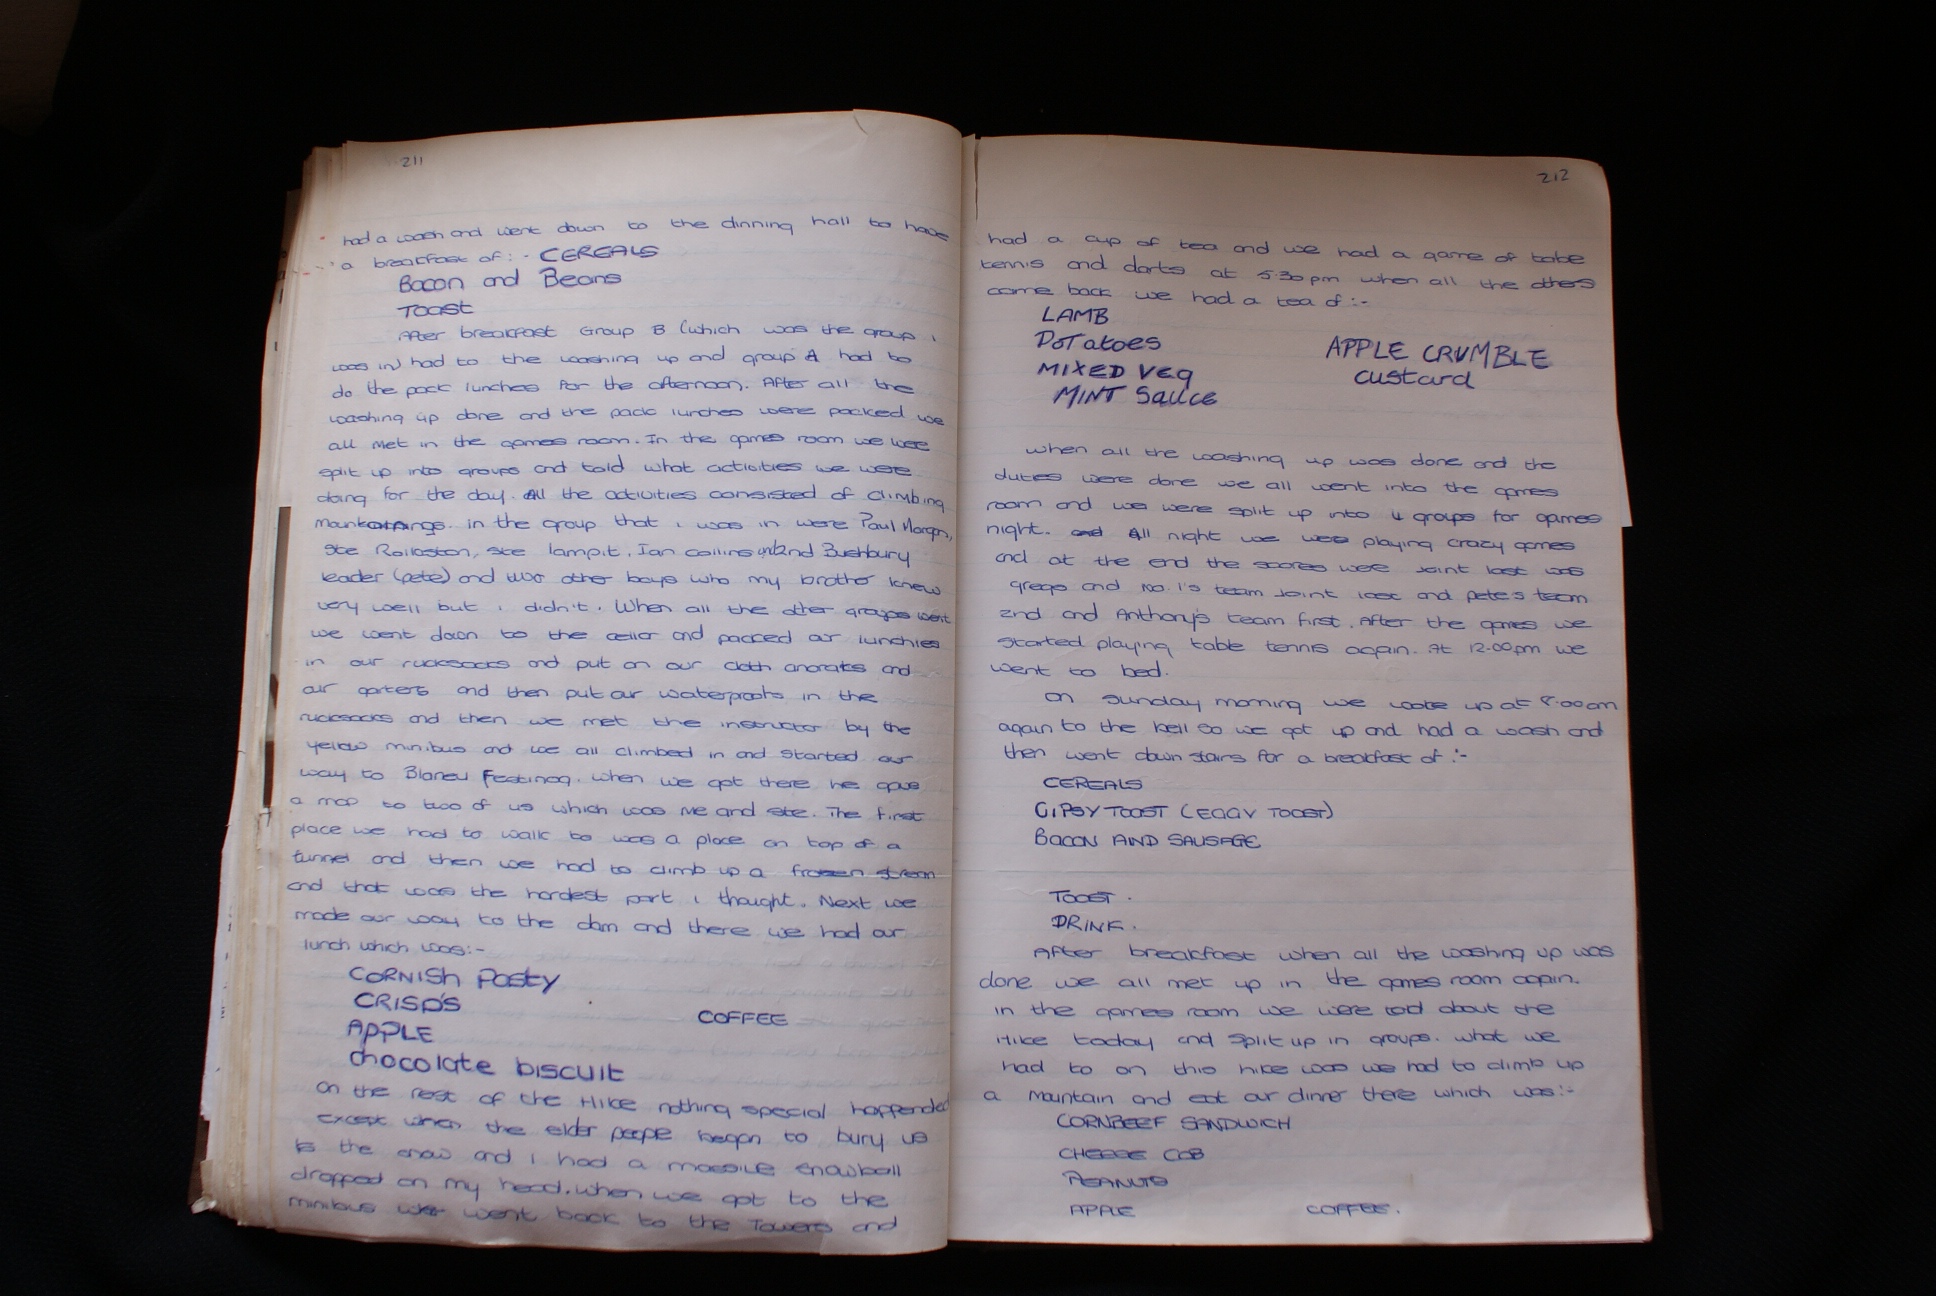 211
had a wash and went down to the dinning hall to have
a breakfast of:- CEREALS
Bacon and Beans
TOAST
After breakfast Group B (which was the group i
was in) had to the washing up and group A had to
do the pack lunches for the afternoon. After all the
washing up done and the pack lunches were packed we
all met in the games room. In the games room we were
split up into groups and told what activities we were
doing for the day. All the activities consisted of climbing
in the group that i was in were Paul Morgan,
Ste Rollaston, Ste lampit, Ian collins 2nd Bushbury
leader (pete) and two other boys who my brother knew
very well but i didn't. When all the other groups went
we went down to the cellar and packed our lunchies
in our rucksacks and put on our cloth anoraks and
our gaiters and then put our waterproofs in the
rucksacks and then we met the instructor by the
yellow minibus and we all climbed in and started our
way to Blaneu Festinog. when we got there he gave
a map to two of us which was Me and Ste. The first
place we had to walk to was a place on top of a
tunnel and then we had to climb up a frozen stream
and that was the hardest part i thought. Next we
made our way to the dam and there we had our
lunch which was:-
CORNISH Pasty
CRISP'S
COFFEE
APPLE
chocolate biscuit
On the rest of the Hike nothing special happended
except when the elder people began to bury us
the snow and I had a massive snowball
dropped on my head. when we got to the
minibus went back to the Towers and
212
had a cup of tea and we had a game of table
tennis and darts at 5.30 pm when all the others
came back we had a tea of:-
LAMB
Potatoes
APPLE CRUMBLE
MIXED Veg
custard
MINT Sauce
when all the washing up was done and the
duties were done we all went into the games
room and we were split up into 4 groups for games
night. and All night we were playing crazy games
and at the end the scores were joint last was
gregs and no. 1's team joint last and pete's team
2nd and Anthony's team first. After the games we
started playing table tennis again. At 12.00pm we
went to bed.
on sunday morning we woke up at 8.00am
again to the bell so we got up and had a wash and
then went down stairs for a breakfast of :-
CEREALS
GIPSY TOAST (EGGY TOAST)
BACON AND SAUSAGE
TOAST.
DRINK.
After breakfast when all the washing up was
done we all met up in the games room again.
in the games room we were told about the
Hike today and split up in groups. what we
had to on this hike was we had to climb up
a Mountain and eat our dinner there which was:-
CORNBEEF SANDWICH
CHEESE COB
PEANUTS
APPLE COFFEE.